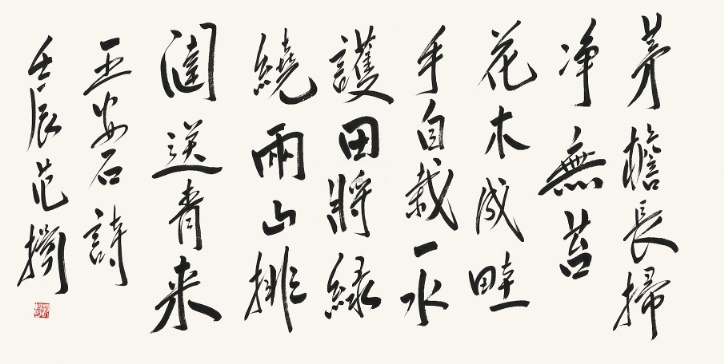 茅檐長掃
净無苔
花木成畦
手自栽一水
護田將緑
繞兩山排
闥送青来
王安石詩
壬辰范